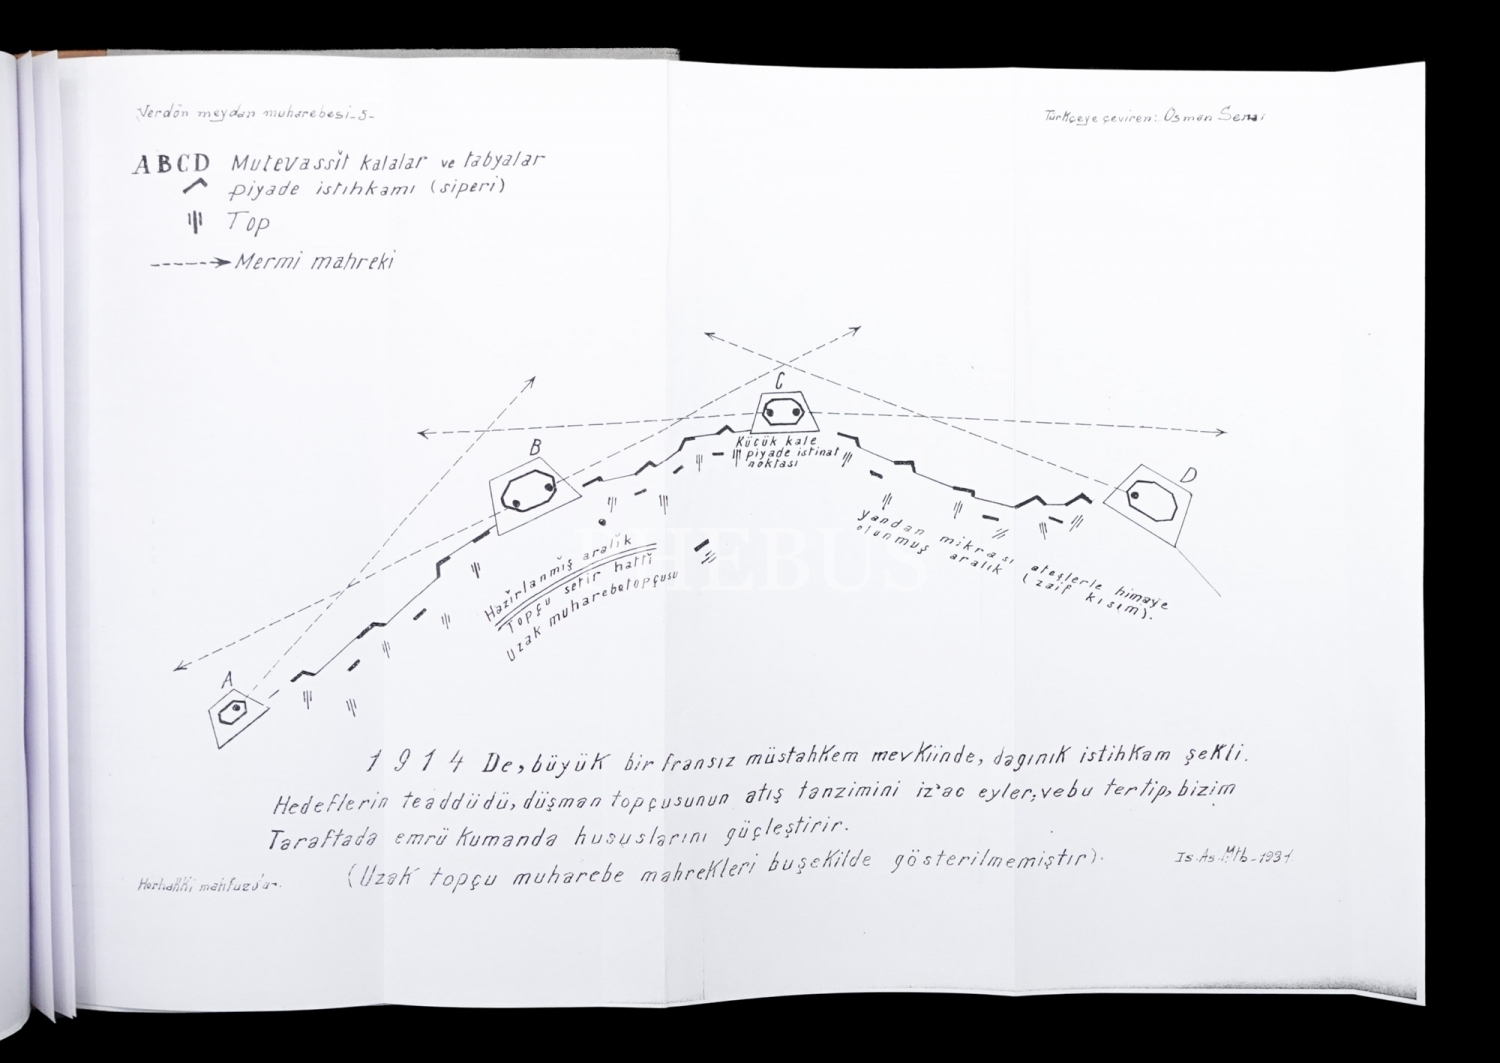 Verdön meydan muharebesi-5-
Türkçeye çeviren: Osman Senai
ABCD Mutevassit kalalar ve tabyalar
piyade istihkamı (siperi)
Top
Mermi mahreki
C
B
D
A
Küçük kale
piyade istinat
noktası
Hazirlanmiş aralik
Topçu setir hatti
Uzak muharebetopçusu
yandan mikrası ateşlerle himaye
olunmuş aralık (zaif kısım).
PHEBUS
1914 De, büyük bir fransız müstahkem mevkiinde, dagınık istihkam şekli.
Hedeflerin teaddüdü, düşman topçusunun atış tanzimini iz'ac eyler, vebu tertip, bizim
Taraftada emrü kumanda hususlarını güçleştirir.
(Uzak topçu muharebe mahrekleri buşekilde gösterilmemiştir).
Is. As. Mtb-1931
Herhakki mahfuzdur.